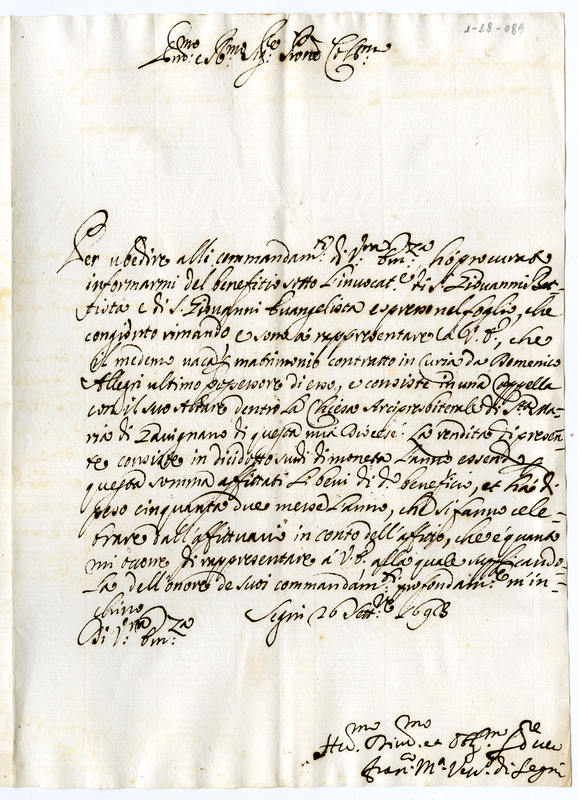 1-28-089
Em.mo e R.mo Sig.re Prone Col.mo
Per ubedire alli commandam.ti di V.ra Em.za hò procurato
informarmi del benefitio sotto l'invocat.e di S. Giovanni Bat-
tista e di S. Giovanni Evangelista espresso nel foglio, che
congionto rimando e sono à rappresentare à V.E., che
il medemo vacò p matrimonio contratto in Curia da Domenico
Allegri ultimo possessore di esso, e consiste in una Cappella
con il suo Altare dentro la Chiesa Arcipresbiterale di S.ta Ma-
ria di Gavignano di questa mia Diocese. La rendita di presen-
te consiste in dicidotto scudi di moneta l'anno essendo
questa somma affittati li beni di d.o beneficio, et hà di
peso cinquanta due messe l'anno, che si fanno cele-
brare dall'affittuario in conto dell'affitto, che è quanto
mi occorre di rappresentare à V.E. alla quale supplicando-
la dell'onore de suoi commandam.ti profondam.te m'in-
chino
Di V.ra Em.za Segni 26 Sett.re 1698
Hu.mo Div.mo et Obl.mo Ser.re vero
Fran.co M.a Vesc.o di Segni